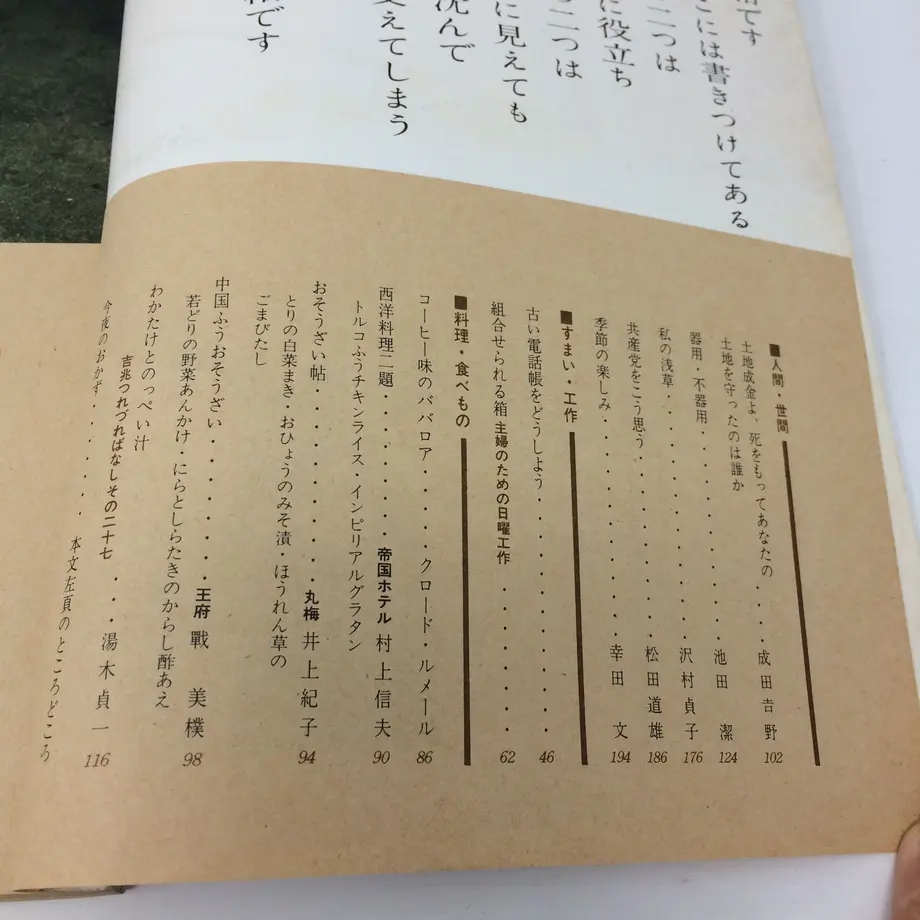 には書きつけてある
二つは
に役立ち
二つは
に見えても
沈んで
変えてしまう
です
■人間・世間
土地成金よ、死をもってあなたの
土地を守ったのは誰か・・・成田吉野 102
器用・不器用・・・・・・・・池田 潔 124
私の浅草・・・・・・・・・・沢村貞子 176
共産党をこう思う・・・・・・松田道雄 186
季節の楽しみ・・・・・・・・幸田 文 194
■すまい・工作
古い電話帳をどうしよう・・・・・・・・ 46
組合せられる箱 主婦のための日曜工作・・・・・・ 62
■料理・食べもの
コーヒー味のババロア・・・・クロード・ルメール 86
西洋料理二題・・・・・・帝国ホテル 村上信夫 90
トルコふうチキンライス、インピリアルグラタン
おそうざい帖・・・・・・・・丸梅 井上紀子 94
とりの白菜まき・おひょうのみそ漬・ほうれん草の
ごまびたし
中国ふうおそうざい・・・・・・王府 戰 美樸 98
若どりの野菜あんかけ・にらとしらたきのからし酢あえ
わかたけとのっぺい汁
吉兆つれづればなしその二十七・・・湯木貞一 116
今夜のおかず・・・・・・本文左頁のところどころ